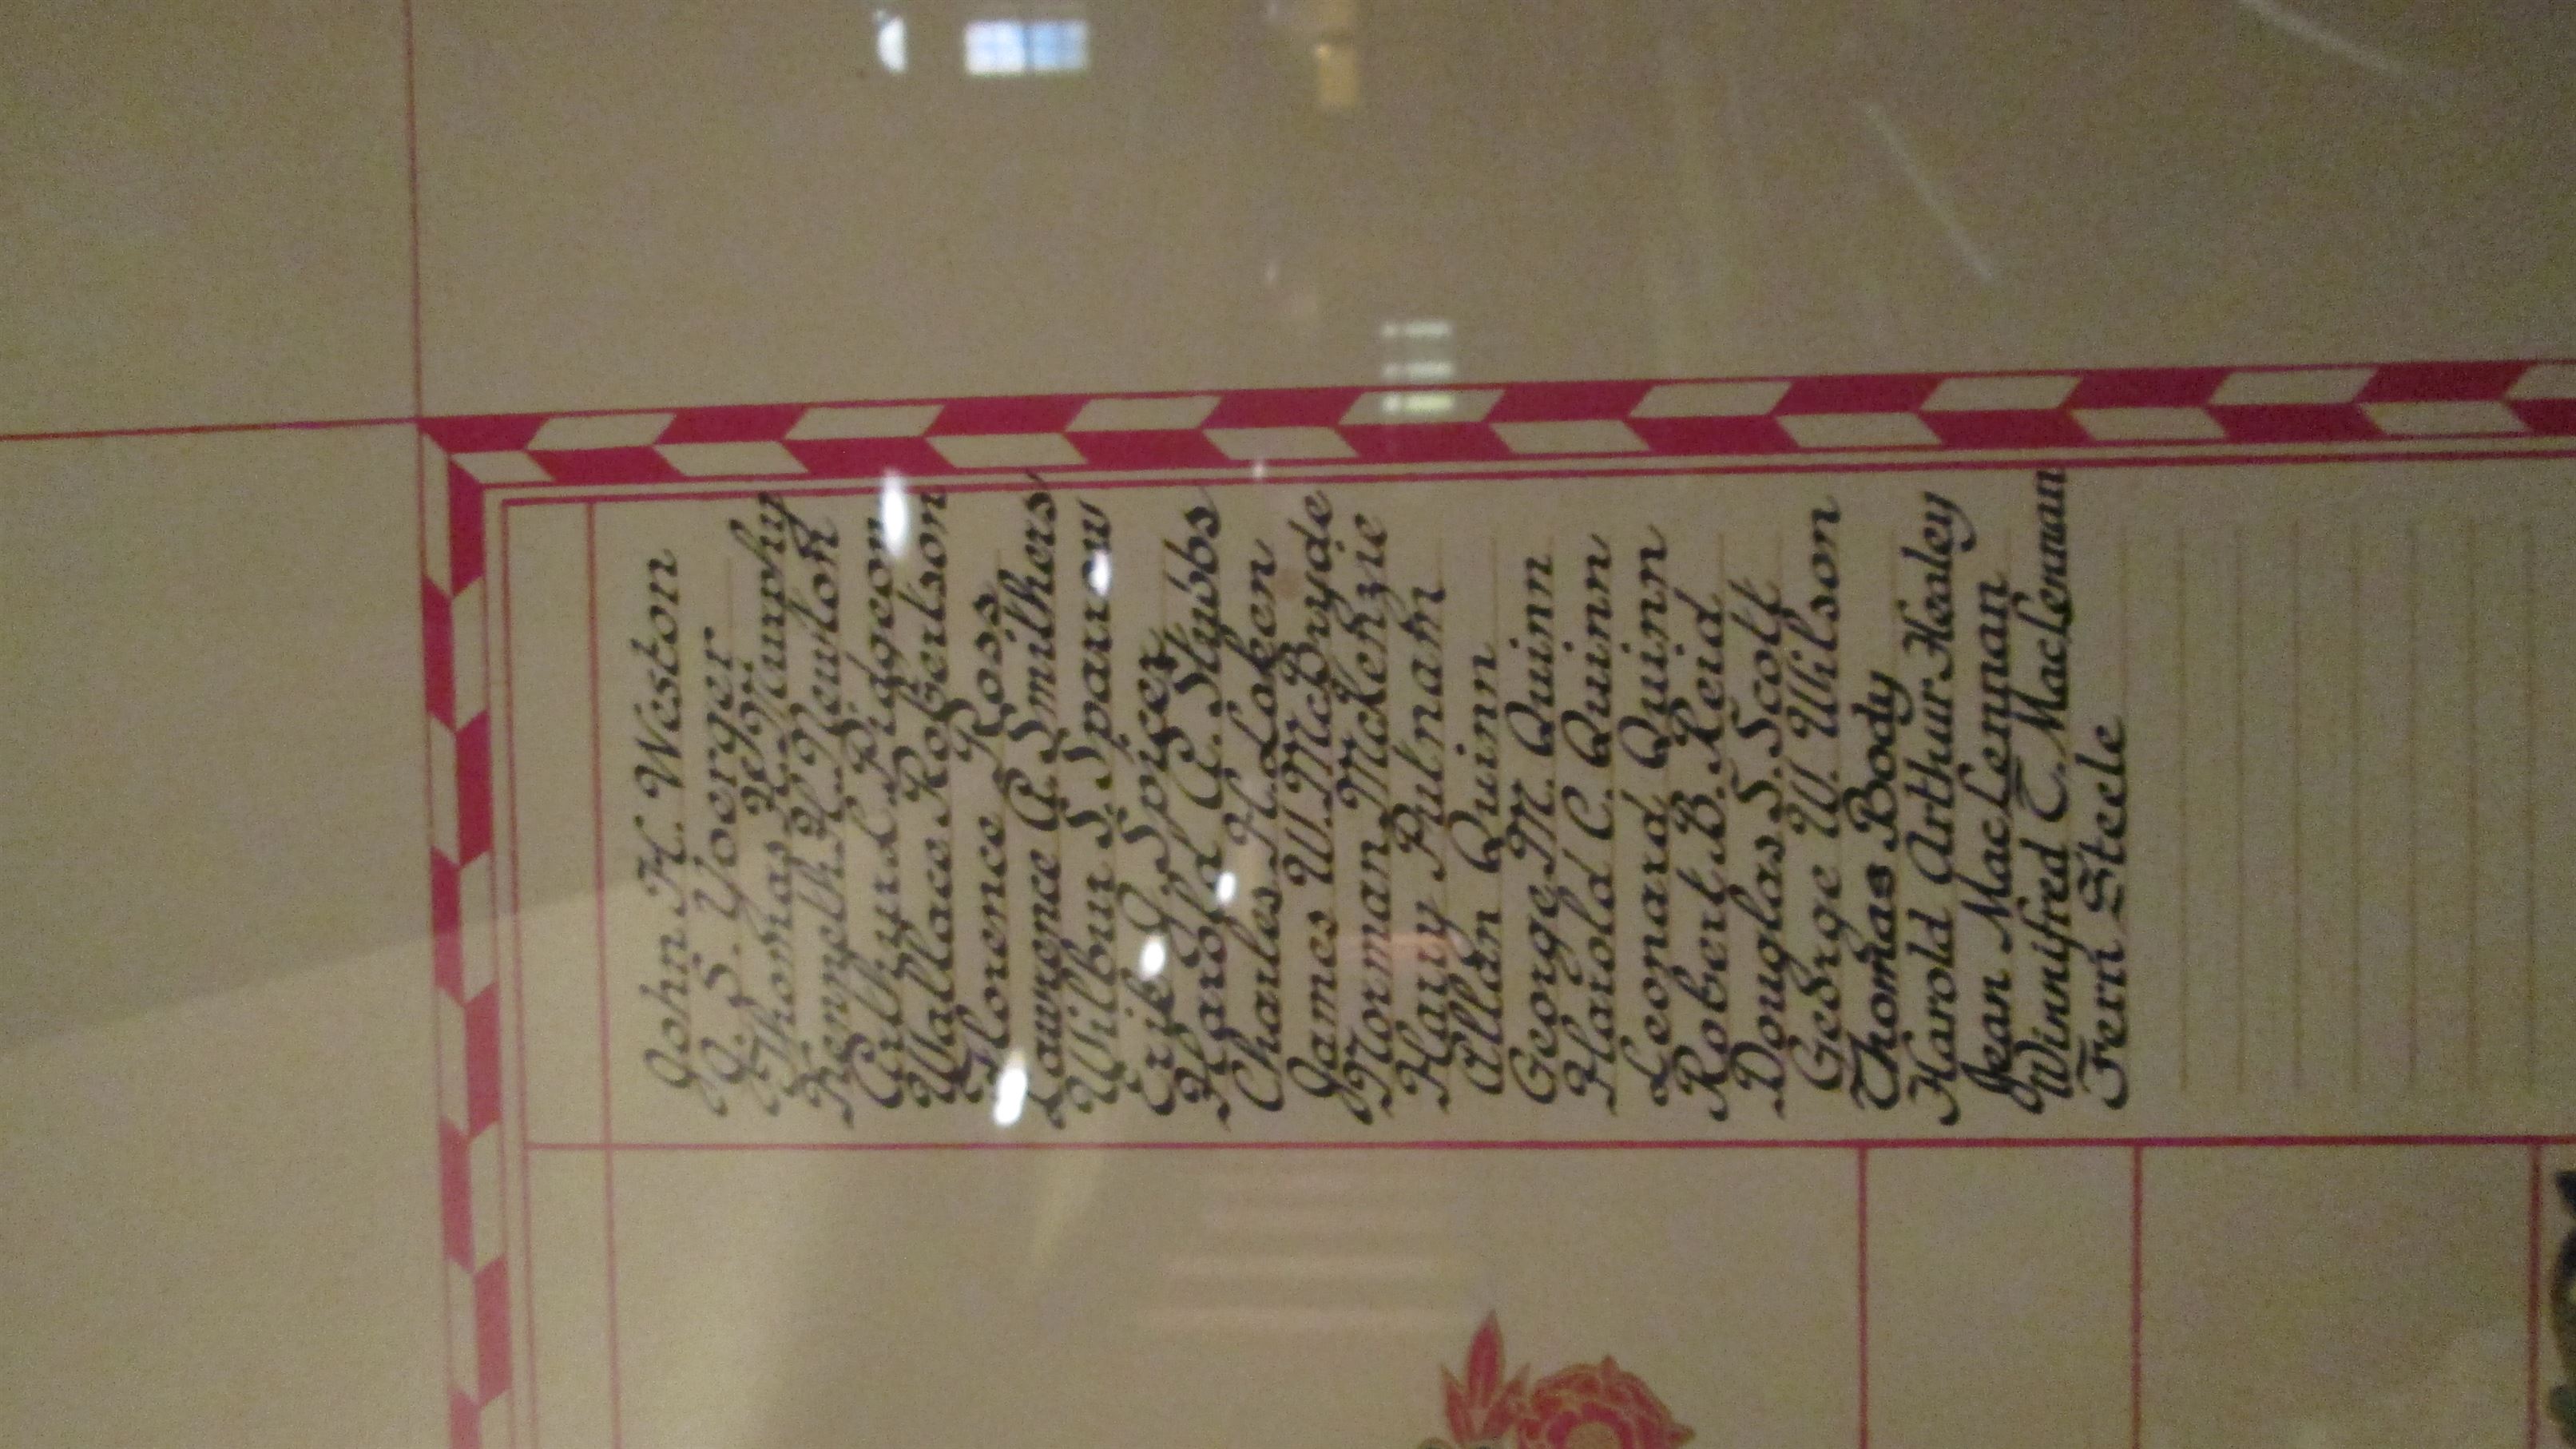 John H. Weston
J. S. Yoerger
Thomas Murphy
Kenneth H. Newton
Arthur L. Pidgeon
Wallace Robertson
Florence Ross
Lawrence A. Smithers
Wilbur S. Sparrow
Erik J. Spicer
Harold A. Stubbs
Charles H. Loken
James W. McBryde
Norman McKenzie
Harry Pulnam
Allan Quinn
George M. Quinn
Harold C. Quinn
Leonard Quinn
Robert B. Reid
Douglas S. Scott
George W. Wilson
Thomas Body
Harold Arthur Healey
Jean MacLennan
Winnifred T. MacLennan
Fern Steele